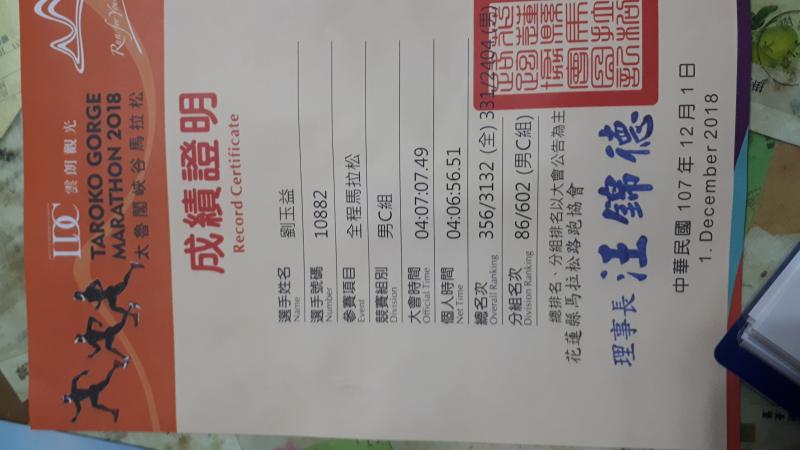 LDC 雲朗觀光
TAROKO GORGE
MARATHON 2018
太魯閣峽谷馬拉松
成績證明
Record Certificate
選手姓名 劉玉益
Name
選手號碼 10882
Number
參賽項目 全程馬拉松
Event
競賽組別 男C組
Division
大會時間 04:07:07.49
Official Time
個人時間 04:06:56.51
Net Time
總名次 356/3132 (全) 331/2404 (男)
Overall Ranking
分組名次 86/602 (男C組)
Division Ranking
總排名、分組排名以大會公告為主
花蓮縣馬拉松路跑協會
理事長 汪錦德
中華民國 107 年 12 月 1 日
1. December 2018